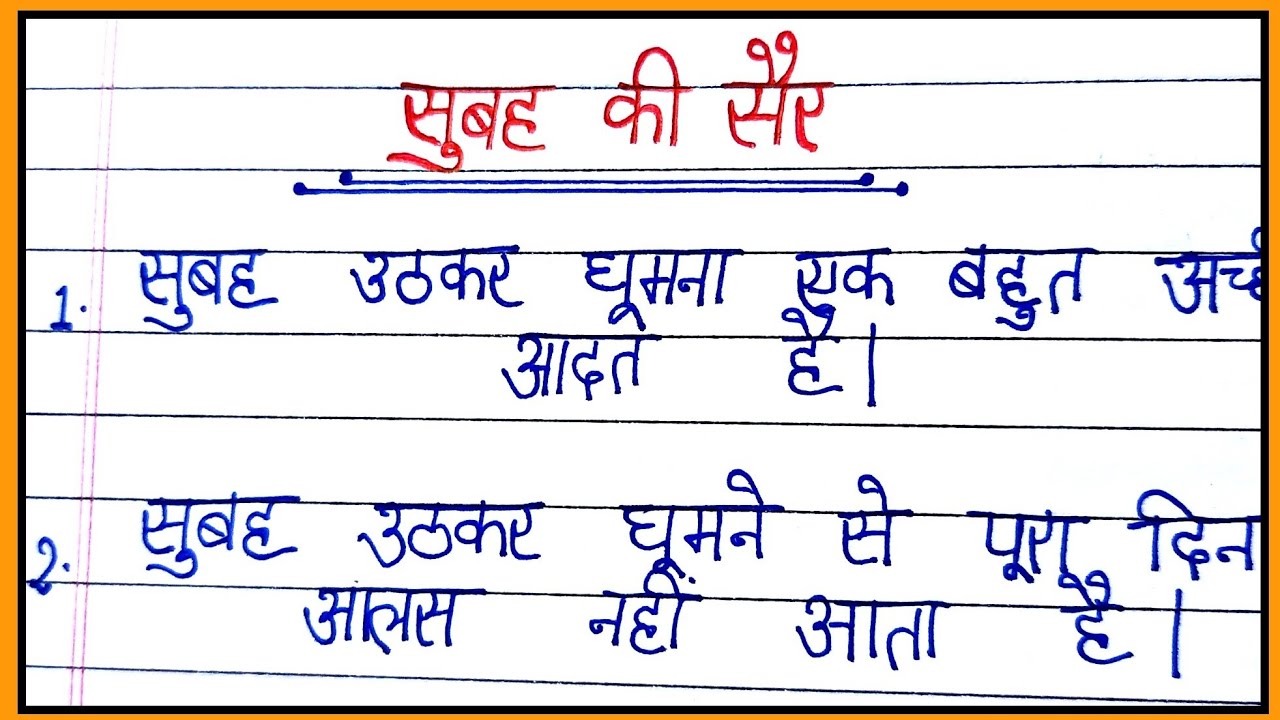 सुबह की सैर
1. सुबह उठकर घूमना एक बहुत अच्छ
आदत है।
2. सुबह उठकर घूमने से पूरा दिन
आलस नहीं आता है।